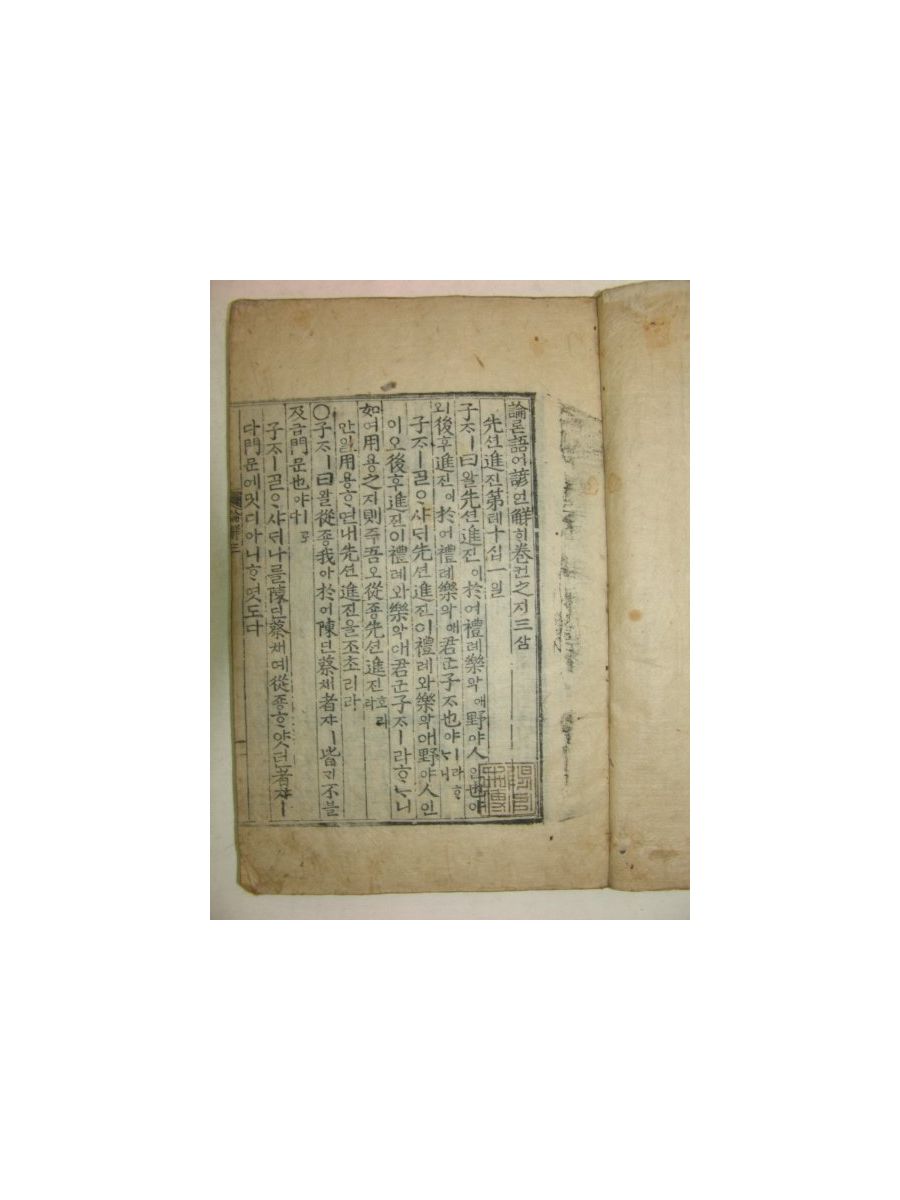 論론語어諺언解ᄒᆡ卷권之지三삼
先션進진第뎨十십一일
子ᄌᆞㅣ曰왈先션進진이於어禮례樂악애野야人인也야
ㅣ오後후進진이於어禮례樂악애君군子ᄌᆞ也야ㅣ라ᄒᆞᄂᆞ니
子ᄌᆞㅣᄀᆞᆯᄋᆞ샤ᄃᆡ先션進진이禮례와樂악애野야人인
이오後후進진이禮례와樂악애君군子ᄌᆞㅣ라ᄒᆞᄂᆞ니
如여用용之지則즉吾오從죵先션進진호리라
만일用용ᄒᆞ면내先션進진을조초리라
○子ᄌᆞㅣ曰왈從죵我아於어陳딘蔡채者쟈ㅣ皆ᄀᆡ不블
及급門문也야ㅣ로다
子ᄌᆞㅣᄀᆞᆯᄋᆞ샤ᄃᆡ나를陳딘蔡채예從죵ᄒᆞ얏던者쟈ㅣ
다門문에밋디아니ᄒᆞ엿도다
論解三